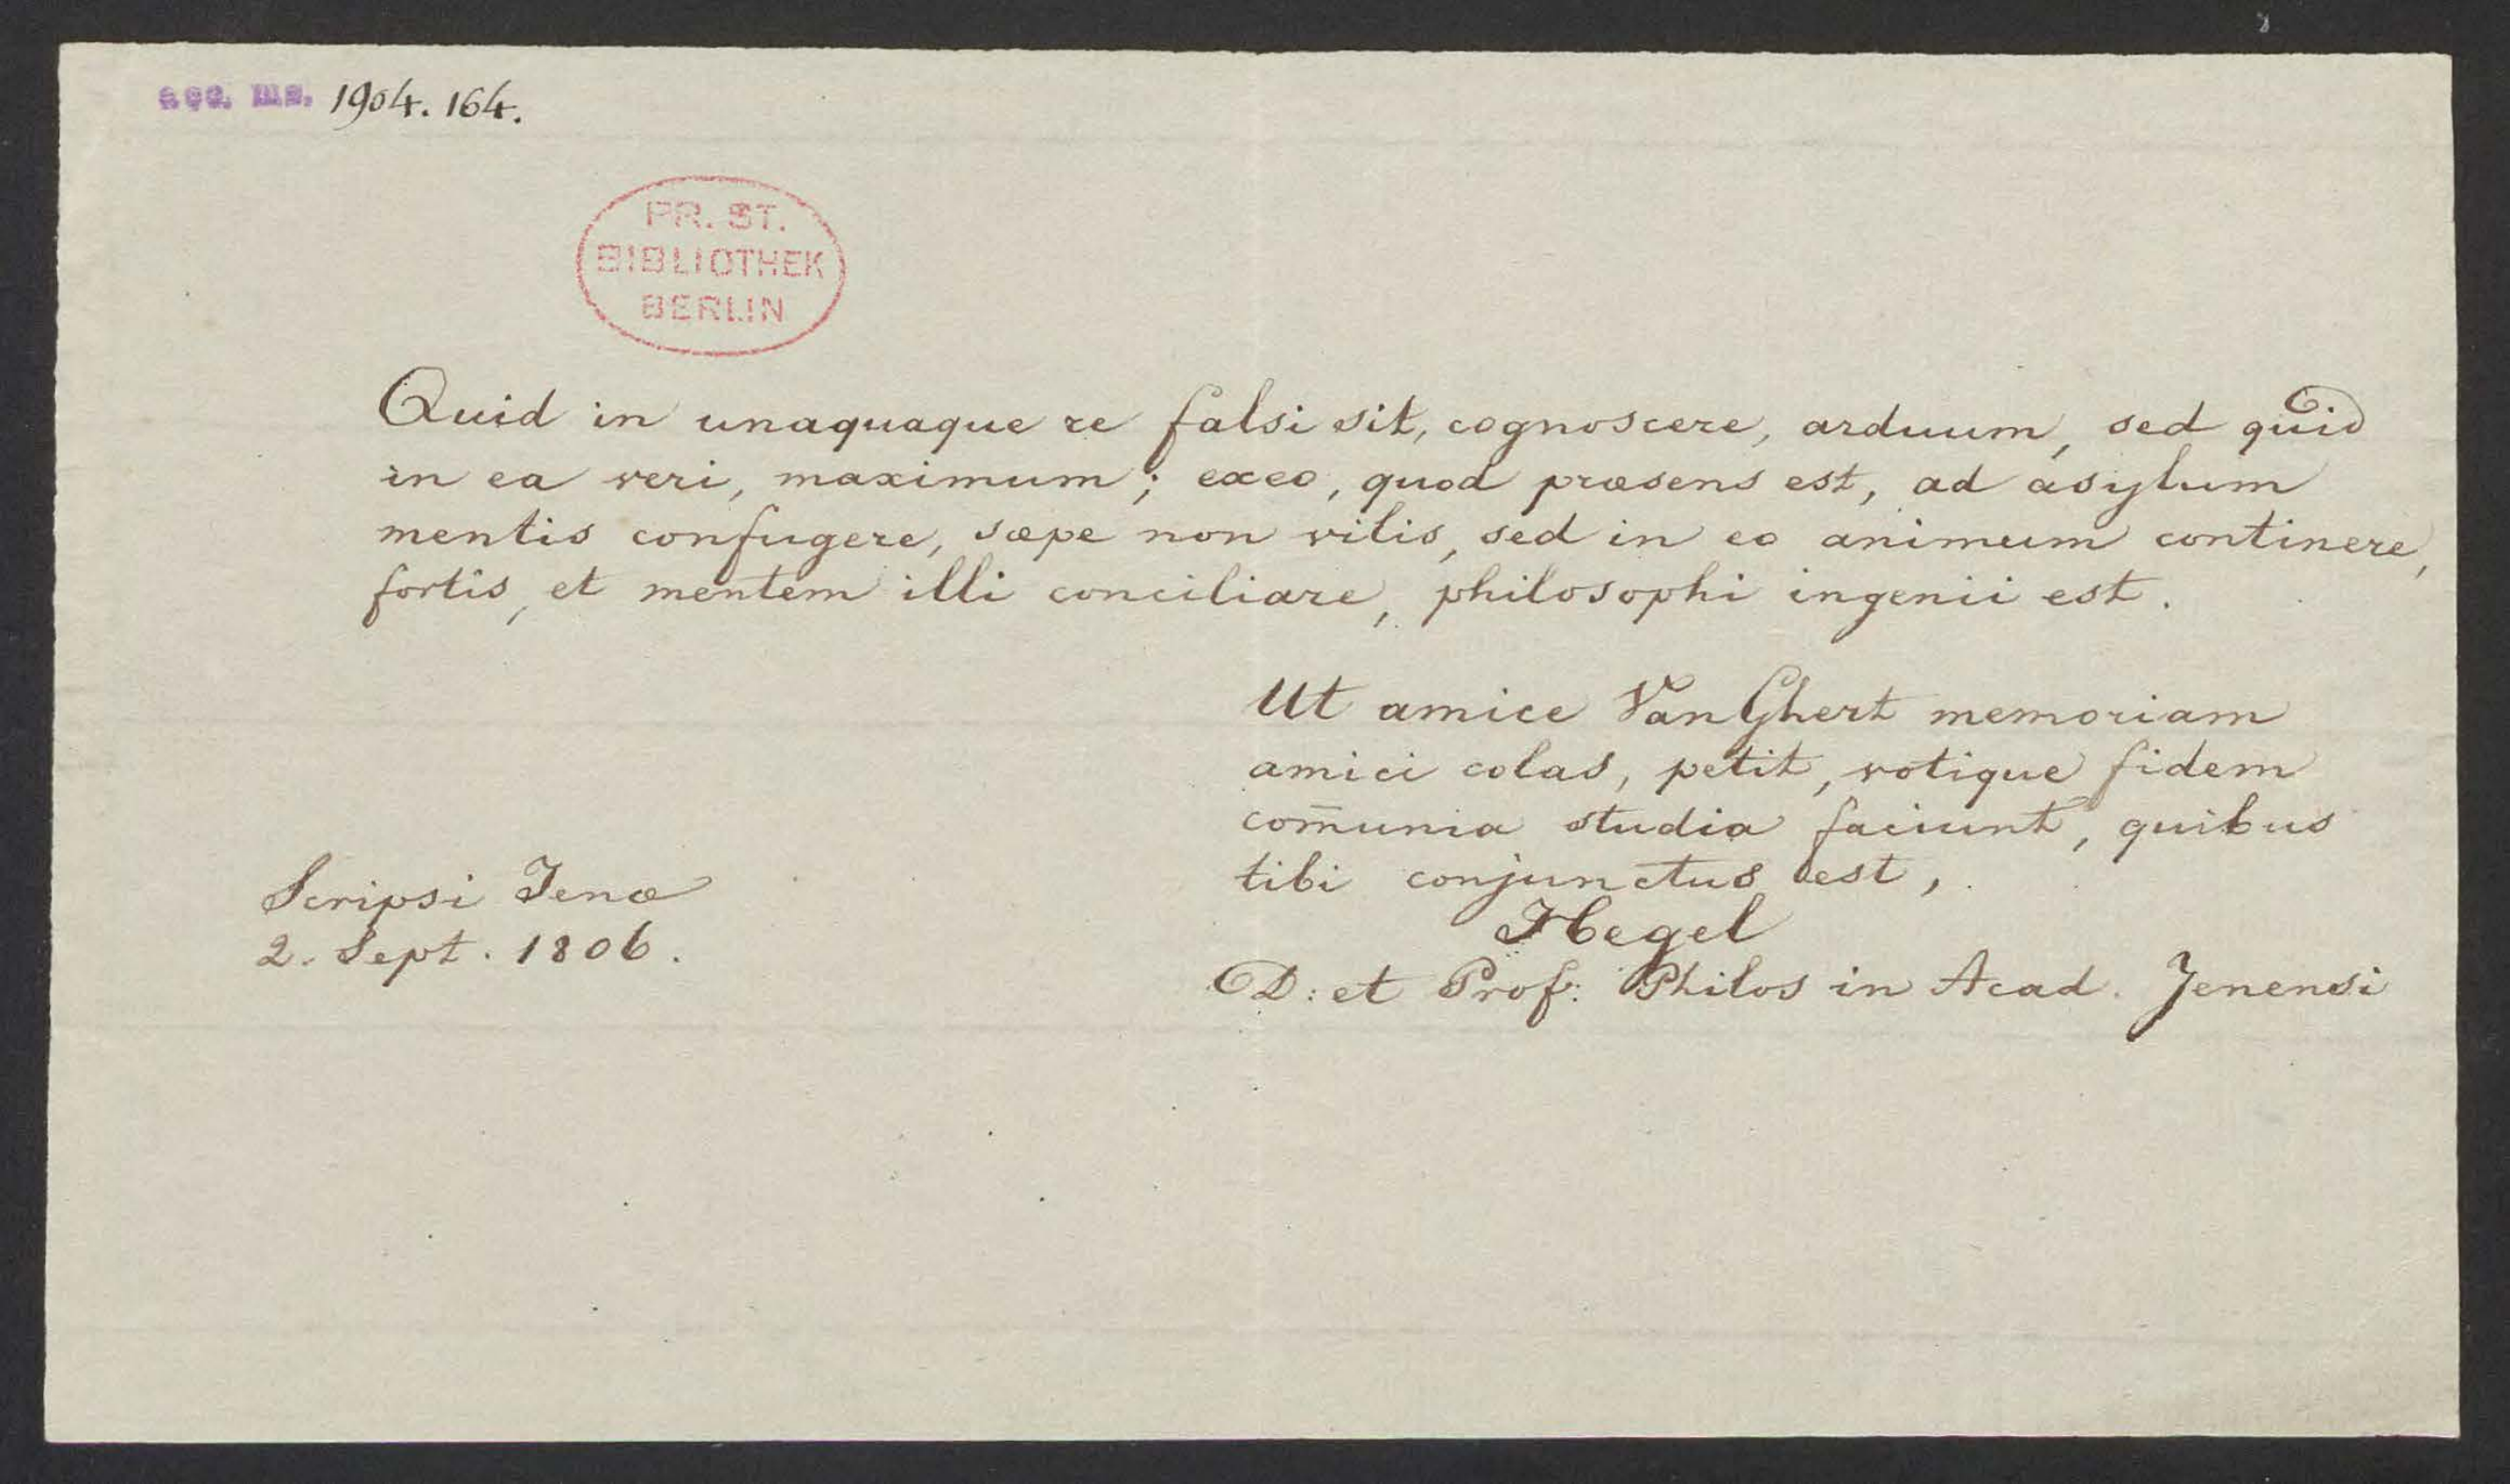 acc. ms. 1904. 164.
PR. ST.
BIBLIOTHEK
BERLIN
Quid in unaquaque re falsi sit, cognoscere, arduum, sed quid
in ea veri, maximum; ex eo, quod præsens est, ad asylum
mentis confugere, sæpe non vilis, sed in eo animum continere,
fortis, et mentem illi conciliare, philosophi ingenii est.
Ut amice Van Ghert memoriam
amici colas, petit, votique fidem
com̄unia studia faciunt, quibus
tibi conjunctus est,
Hegel
D: et Prof: Philos in Acad. Jenensi
Scripsi Jenæ
2. Sept. 1806.